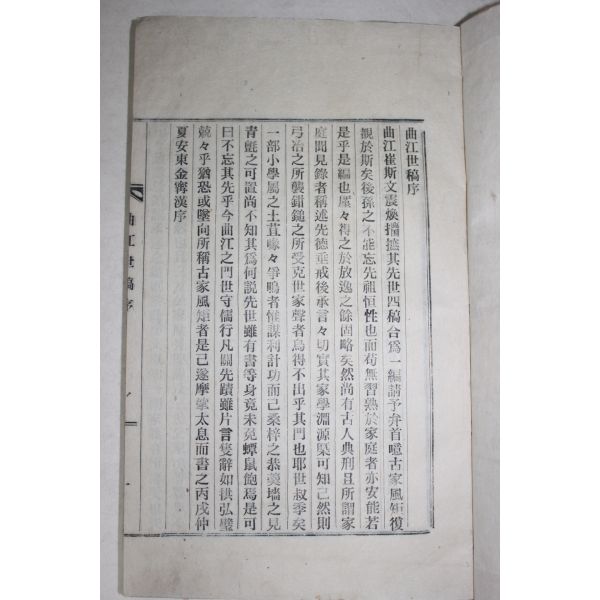 曲江世稿序
曲江崔斯文震煥攟摭其先世四稿合爲一編請予弁首噫古家風矩復
覩於斯矣後孫之不能忘先祖恒性也而苟無習熟於家庭者亦安能若
是乎是編也厪々得之於放逸之餘固略矣然尚有古人典刑且所謂家
庭聞見錄者稱述先德垂戒後承言々切實其家學淵源槩可知已然則
弓冶之所襲錯鎚之所受克世家聲者烏得不出乎其門也耶世叔季矣
一部小學屬之土苴喙々爭鳴者惟謀利計功而已桑梓之恭羹墻之見
青氈之可置尚不知其爲何說先世雖有書等身竟未免蟫鼠飽焉是可
曰不忘其先乎今曲江之門世守儒行凡關先蹟雖片言隻辭如拱弘璧
兢々乎猶恐或墜向所稱古家風矩者是已遂摩挲太息而書之丙戌仲
夏安東金甯漢序
曲江世稿序
一